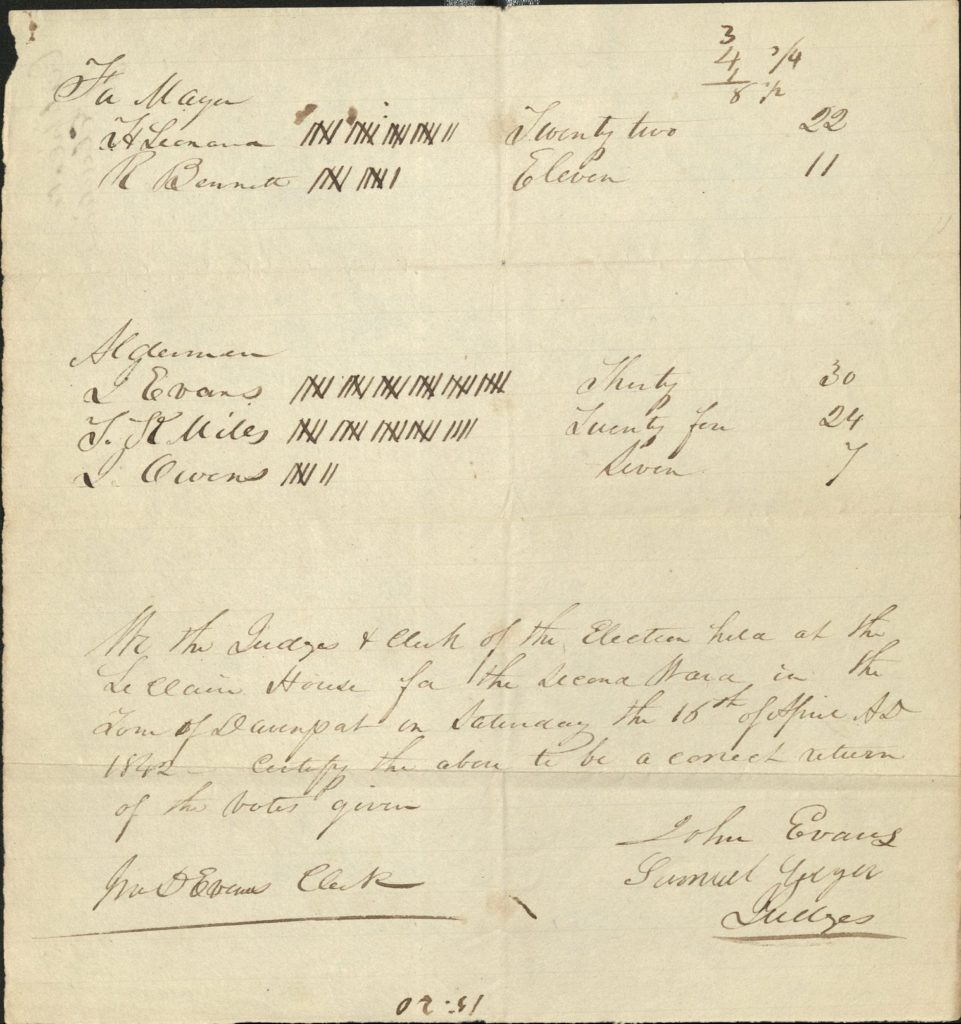 3
4 3/4
1
8 1/2
For Mayor
H Leonard 𝍸 𝍸 𝍸 𝍸 II Twenty two 22
R Bennett 𝍸 𝍸 I Eleven 11
Aldermen
J Evans 𝍸 𝍸 𝍸 𝍸 𝍸 𝍸 Thirty 30
J. K Miles 𝍸 𝍸 𝍸 𝍸 IIII Twenty four 24
J. Owens 𝍸 II Seven 7
We the Judges & Clerk of the Election held at the
LeClaire House for the Second Ward in the
Town of Davenport on Saturday the 16th of April AD
1842 - Certify the above to be a correct return
of the votes given
John Evans
Jno D Evans Clerk
Samuel
Judges
15-20